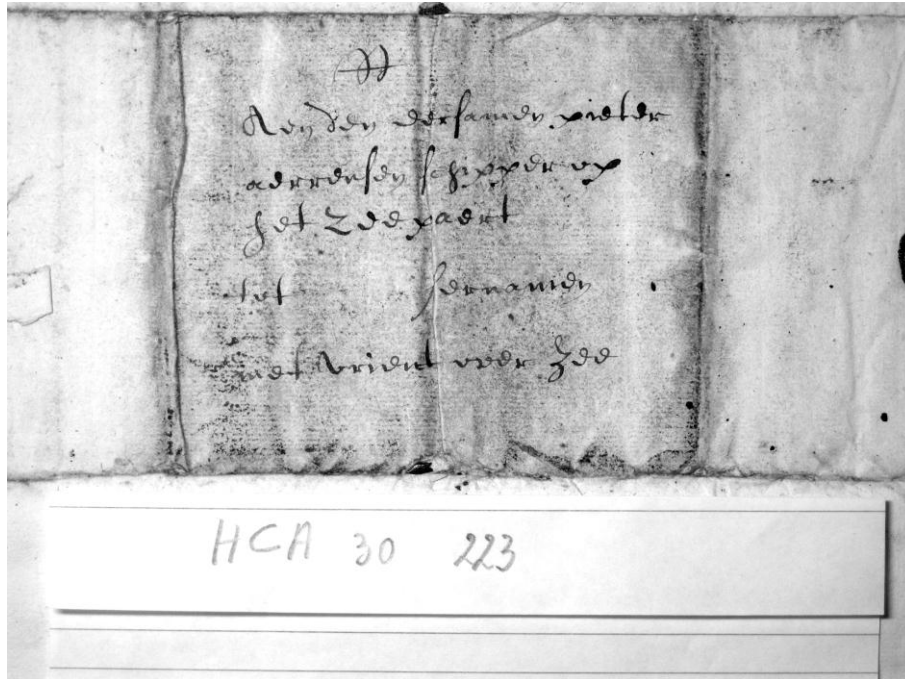 Aen den eersamen pieter
aerrensen schipper op
het Zee paert
tot fernamen
met vrient over Zee
HCA 30 223